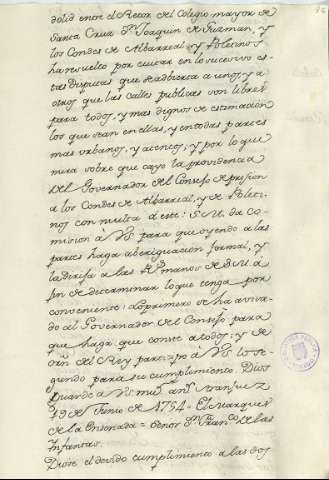 dolid entre el Rector del Colegio mayor de
Santa Cruz Dn. Joaquin de Guzman, y
los Condes de Albarreal, y Polentinos
ha resuelto por cuitar en lo sucesivo es-
tas disputas que se advierta a unos, y a
otros que las calles publicas son libres
para todos, y mas dignos de estimacion
los que sean en ellas, y en todas partes
mas urbanos, y atentos; y por lo que
mira sobre que cayo la providencia
del Governador del Consejo de prision
a los Condes de Albarreal, y de Polenti-
nos con multa à este: S.M. da co-
mision à VS para que oyendo a las
partes haga aberiguacion formal, y
la dirija a las Rs. manos de S.M. à
fin de determinar lo que tenga por
conveniente: Lo primero se ha avisa-
do al Governador del Consejo para
que haga que conste a todos; y de
orn. del Rey participo à VS lo se-
gundo para su cumplimiento. Dios
guarde à VS ms. as. Aranjuez
19 de Junio de 1754 = El Marques
de la Ensenada = Señor Dn. Franco. de las
Infantas.
Diose el devido cumplimiento a las dos